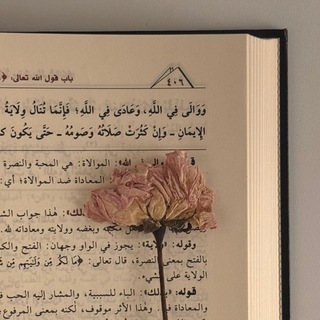 باب قول الله تعالى: ﴿
٤٠٦
وَوَالَى فِي اللَّهِ، وَعَادَى فِي اللَّهِ؛ فَإِنَّمَا تُنَالُ وِلَايَةُ
الإِيمَانِ ـ وَإِنْ كَثُرَتْ صَلَاتُهُ وَصَوْمُهُ ـ حَتَّى يَكُونَ كَ
الله»: الموالاة: هي المحبة والنصرة
المعاداة ضد الموالاة؛ أي:
ذلك»: هذا جواب الش
محبه وبغضه وولايته ومعاداته لله.
وقوله: «ولاية»: يجوز في الواو وجهان: الفتح والك
بالفتح بمعنى النصرة، قال تعالى: ﴿مَا لَكُم مِّن وَلَايَتِهِم مِّن
الولاية على الشيء.
قوله: «بذلك»: الباء للسببية، والمشار إليه الحب ف
والمعاداة فيه. وهذا الأثر موقوف، لكنه بمعنى المرفوع،